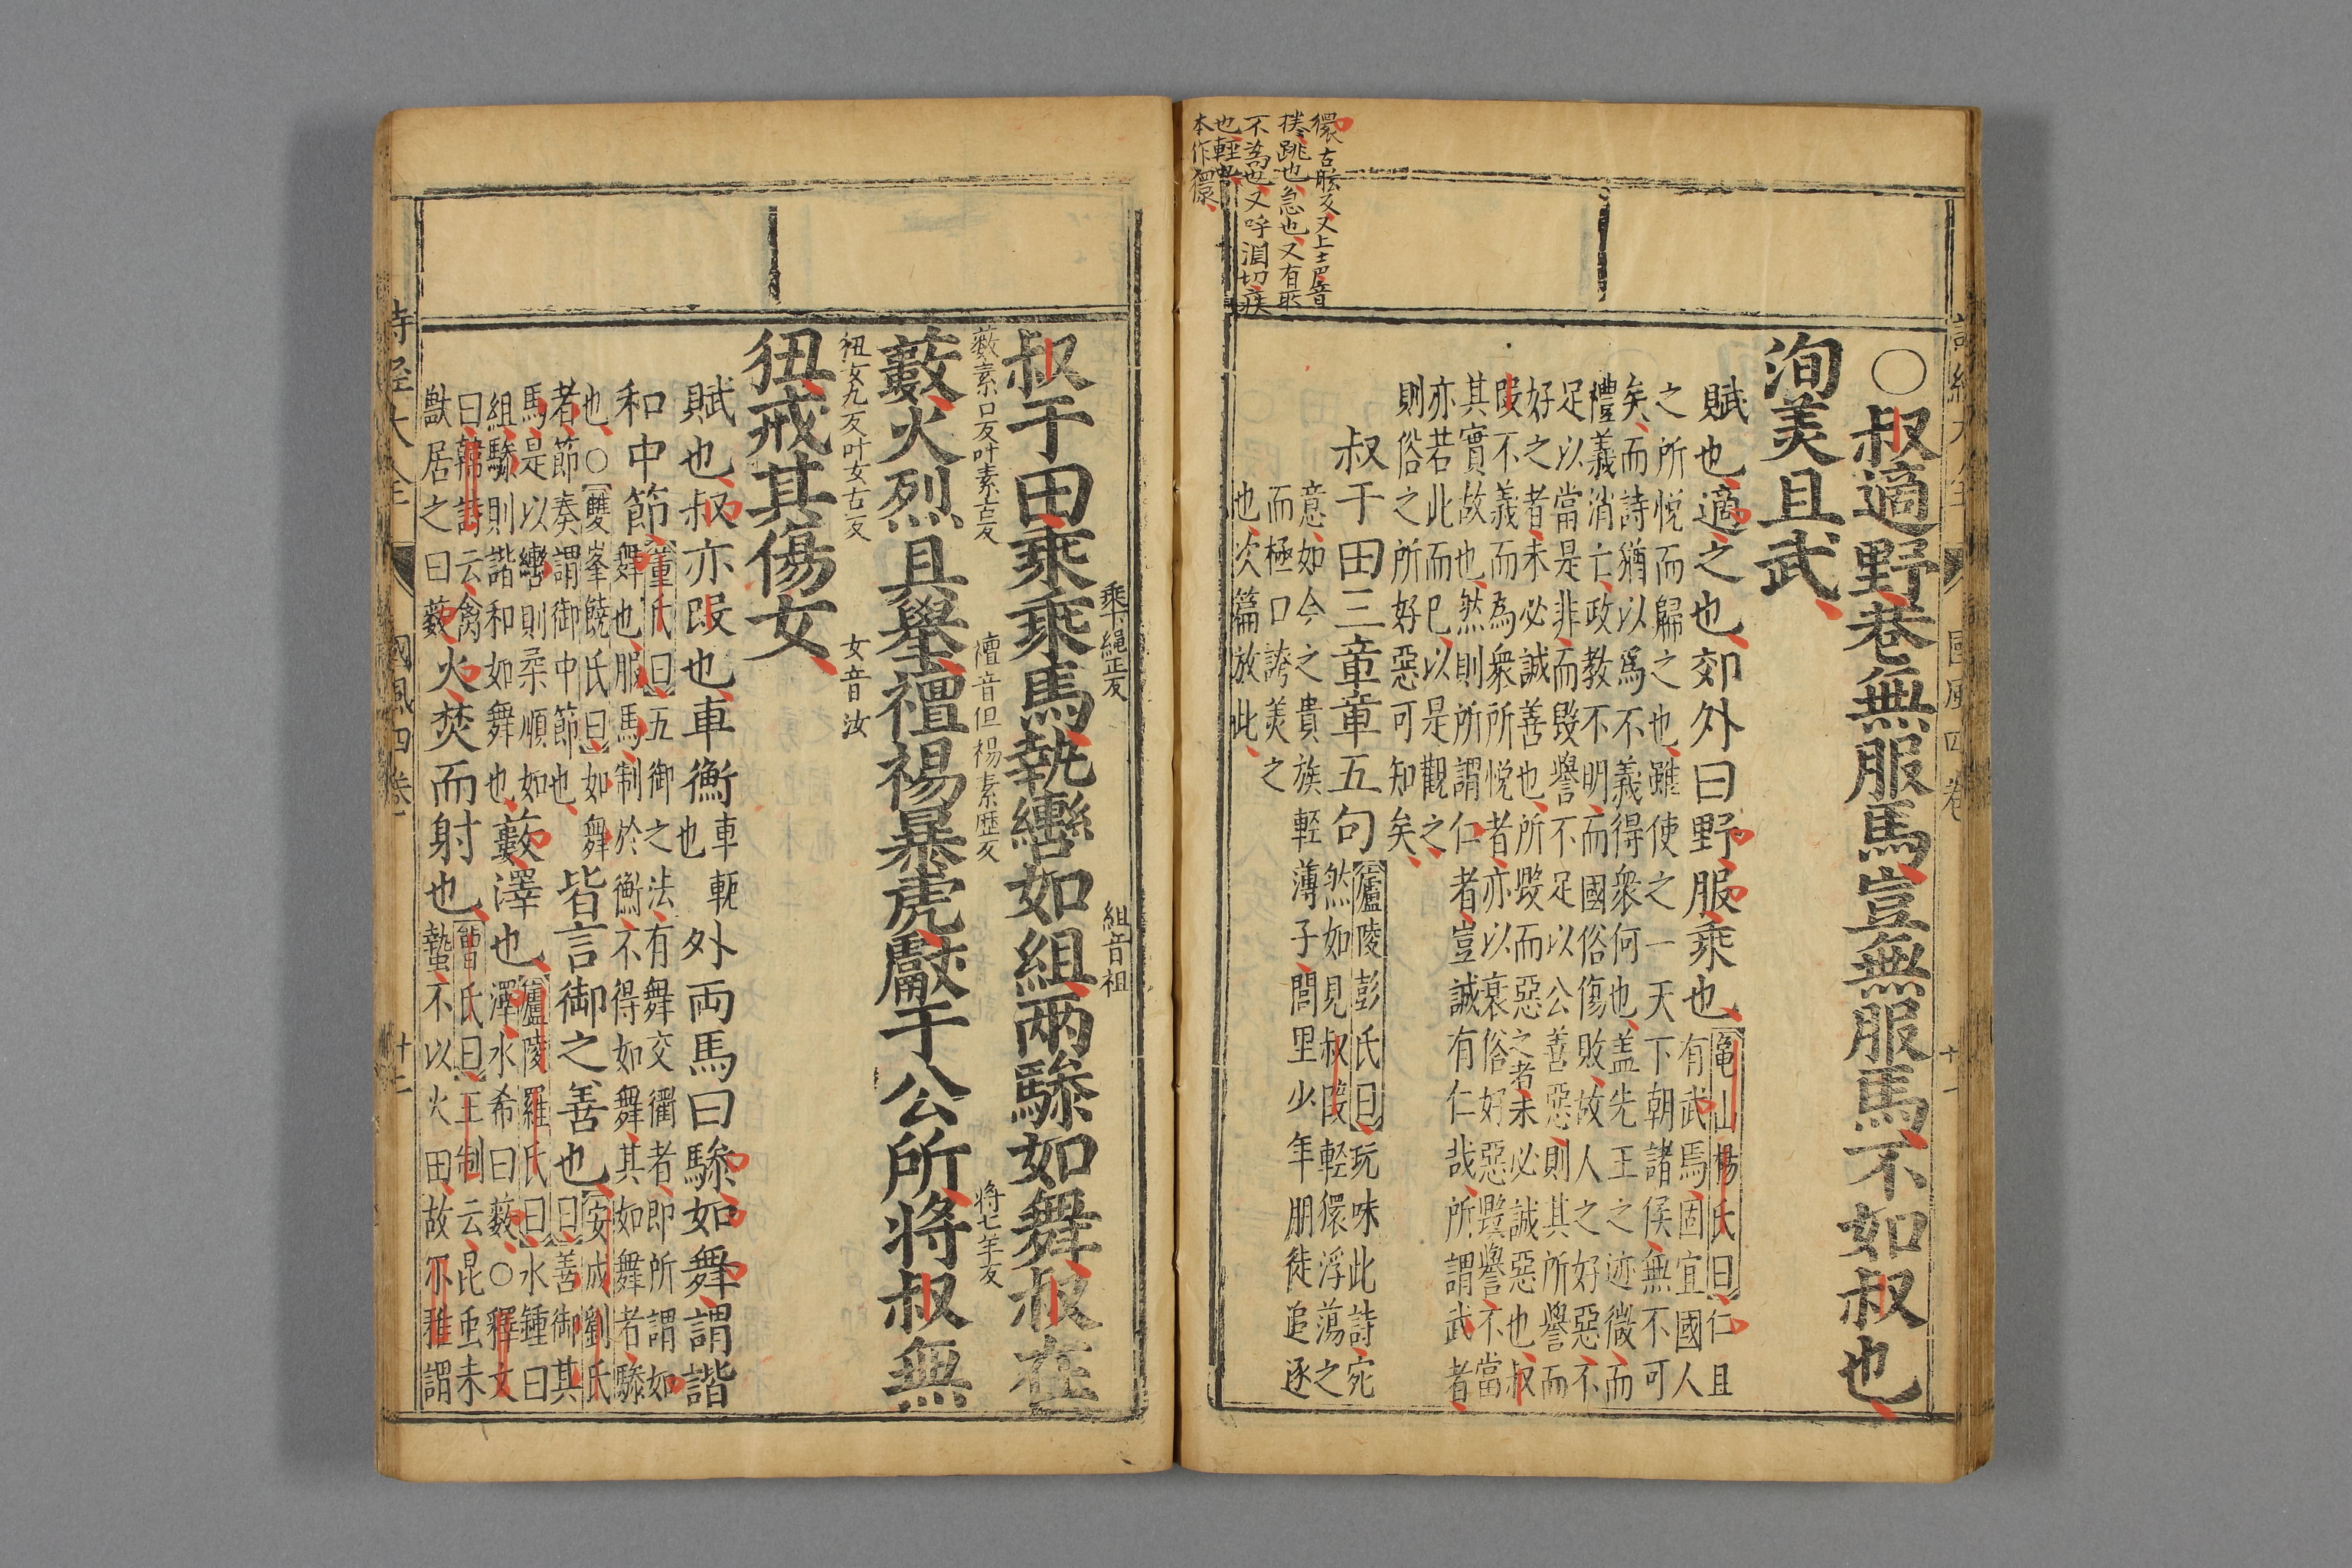 獧古眩反又上士召音
獧跳也急也又有所
不為也又呼涓切疾
也輕也
本作獧
○叔適野巷無服馬豈無服馬不如叔也
洵美且武
賦也適之也郊外曰野服乘也
龜山楊氏曰仁且
有武焉固宜國人
之所悅而歸之也雖使之一天下朝諸侯無不可
矣而詩猶以為不義得衆何也盖先王之迹微而
禮義消亡政教不明而國俗傷敗故人之好惡不
足以當是非而毀譽不足以公善惡則其所譽而
好之者未必誠善也所毀而惡之者未必誠惡也叔
段不義而為衆所悅者亦以衰俗好惡毀譽不當
其實故也然則所謂仁者豈誠有仁哉所謂武者
亦若此而已以是觀之
則俗之所好惡可知矣
叔于田三章章五句
廬陵彭氏曰玩味此詩宛
然如見叔段輕獧浮蕩之
意如今之貴族輕薄子閭里少年朋徒追逐
而極口誇美之
也次篇放此
詩經大全 國風四卷 十一
乘下繩正反 組音祖
叔于田乘乘馬執轡如組兩驂如舞叔在
藪素口反叶素古反 襢音但裼素歷反 將七羊反
藪火烈具舉襢裼暴虎獻于公所將叔無
狃女九反叶女古反 女音汝
狃戒其傷女
賦也叔亦段也車衡外兩馬曰驂如舞謂諧
車軛
也
和中節
董氏曰五御之法有舞交衢者即所謂如
舞也服馬制於衡不得如舞其如舞者驂
也○雙峯饒氏曰如舞
者節奏謂御中節也
皆言御之善也
安成劉氏
曰善御其
馬是以轡則柔順如
組驂則諧和如舞也
藪澤也
廬陵羅氏曰水鍾曰
澤水希曰藪○釋文
曰韓詩云禽
獸居之曰藪
火焚而射也
曾氏曰王制云昆虫未
蟄不以火田故爾雅謂
詩經大全 國風四卷 十二